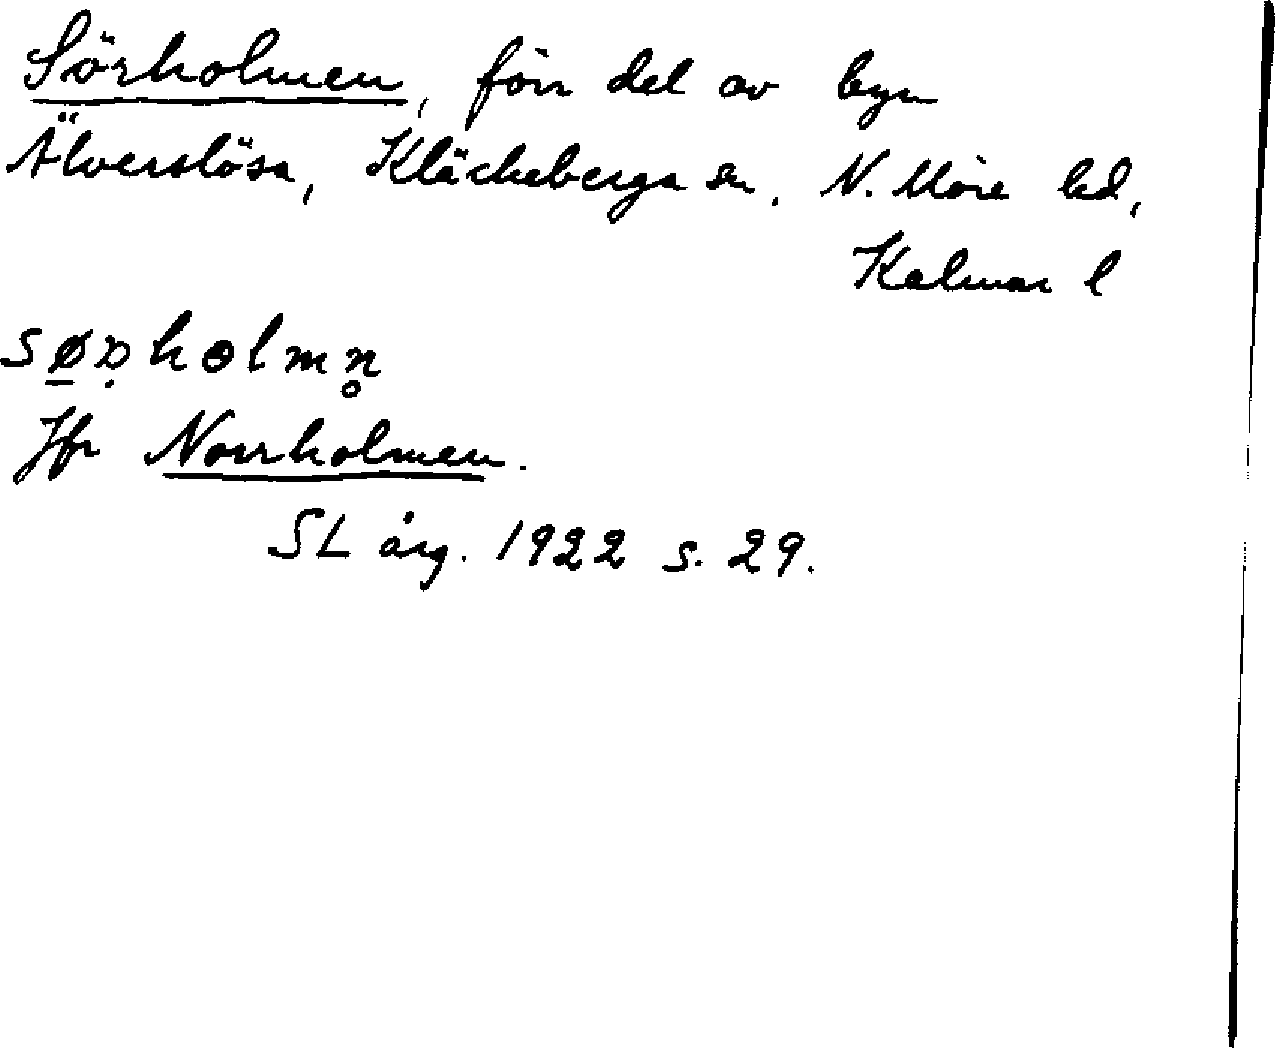 Sörholmen, förr del av byn
Älverslösa, Kläckeberga sn, N. Möre hd,
Kalmar l
sø̠ṛholmn̥
Jfr Norrholmen.
SL årg. 1922 s. 29.